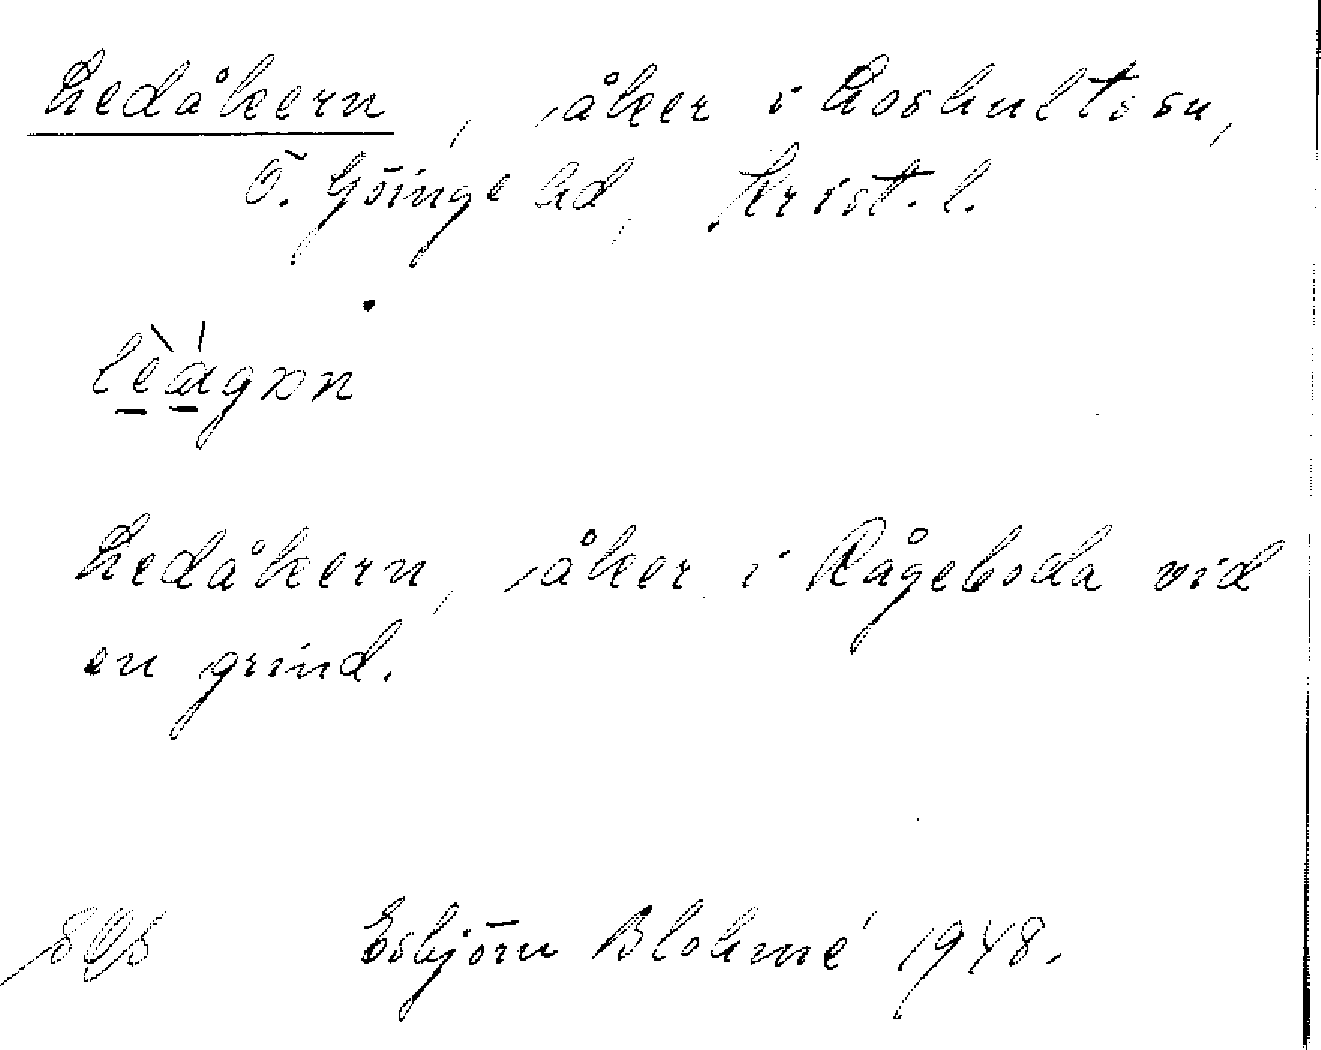 Ledåkern, åker i Loshults sn,
Ö. Göinge hd, Krist. l.
Ledåkern, åker i Rågeboda vid
en grind.
Esbjörn Blohmé 1948.